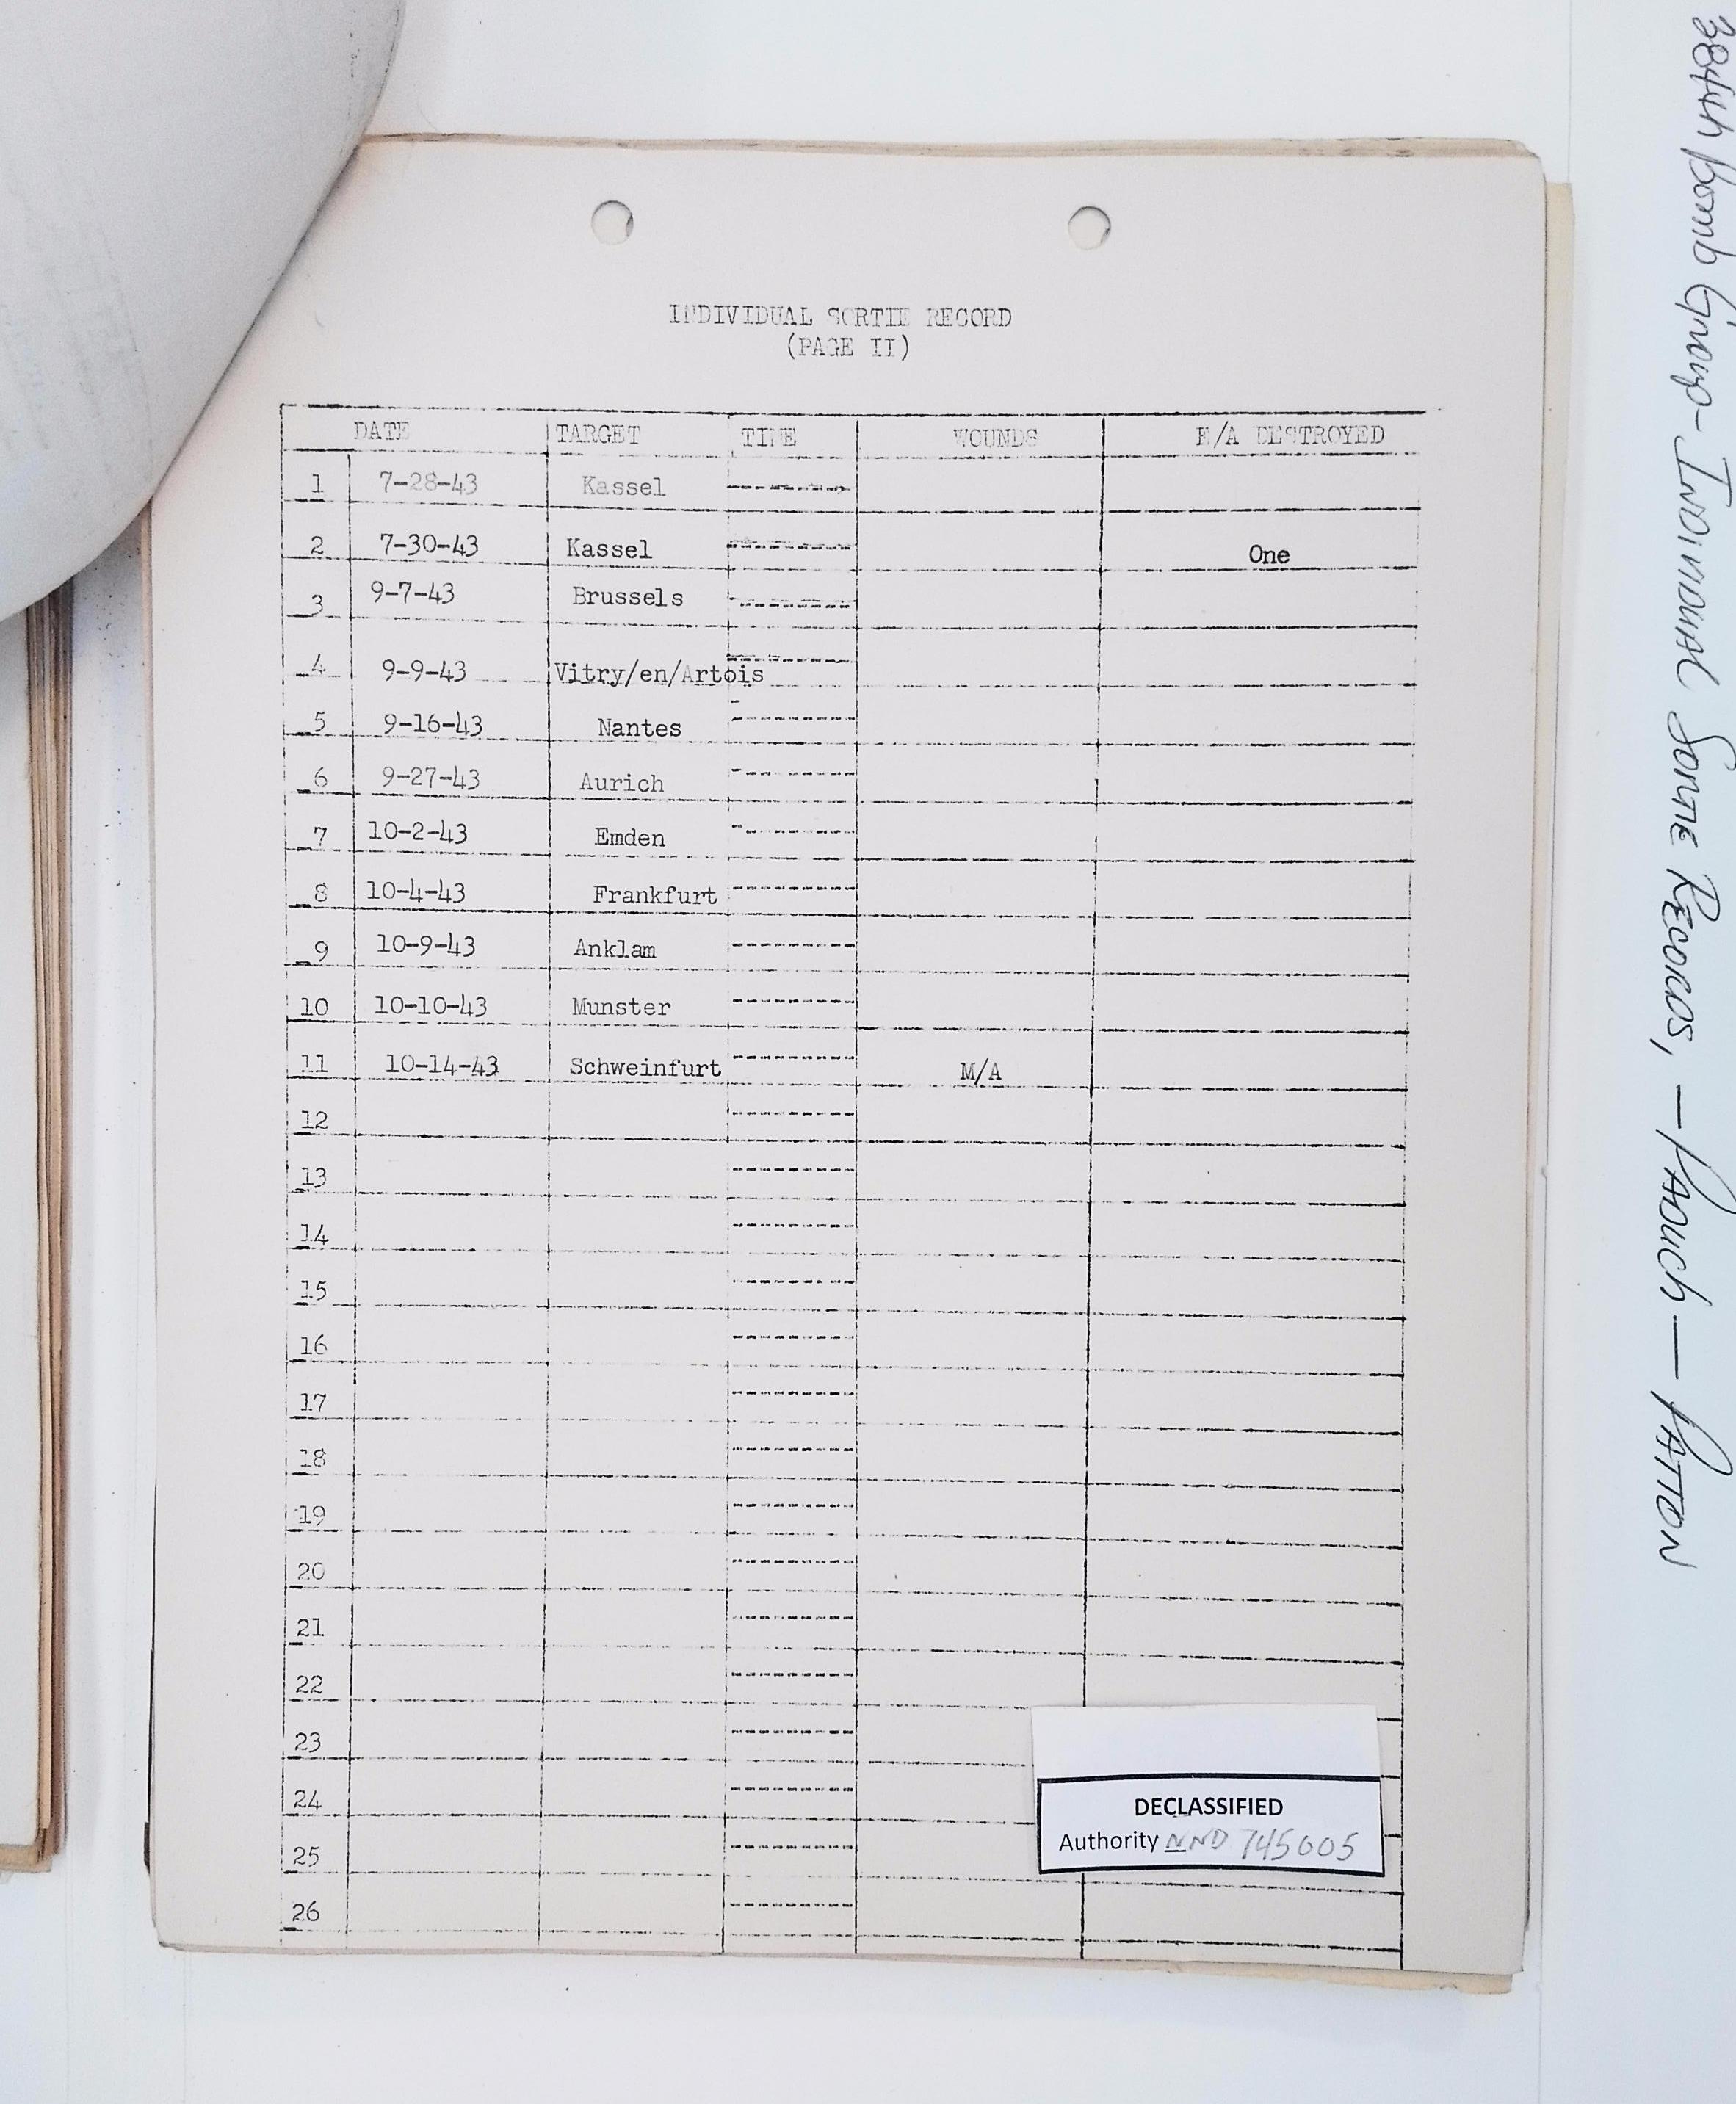 INDIVIDUAL SORTIE RECORD
(PAGE II)
DATE TARGET TIME WOUNDS E/A DESTROYED
1 7-28-43 Kassel
2 7-30-43 Kassel One
3 9-7-43 Brussels
4 9-9-43 Vitry/en/Artois
5 9-16-43 Nantes
6 9-27-43 Aurich
7 10-2-43 Emden
8 10-4-43 Frankfurt
9 10-9-43 Anklam
10 10-10-43 Munster
11 10-14-43 Schweinfurt M/A
12
13
14
15
16
17
18
19
20
21
22
23
24
25
26
DECLASSIFIED
Authority NND 745005
384th Bomb Group - INDIVIDUAL SORTIE RECORDS, - PADUCH - PATTON